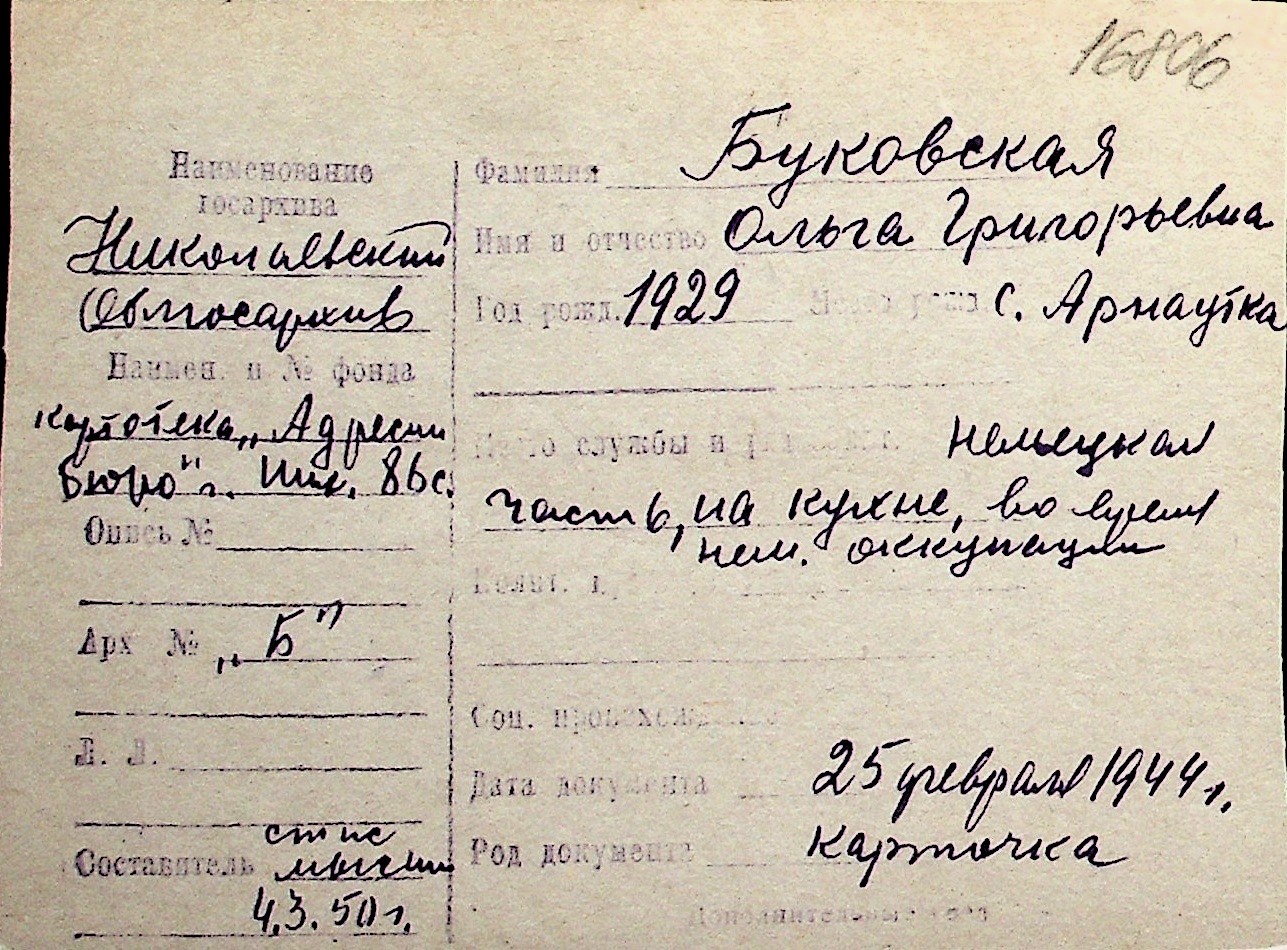 16806
Наименование
госархива
Николаевский
Облгосархив
Наимен. и № фонда
картотека „Адресн
бюро" г. Ник. 86с.
Опись №
Арх №
„Б"
Л. Л.
Составитель
4.3.50 г.
Фамилия Буковская
Имя и отчество Ольга Григорьевна
Год рожд. 1929 Место рожд. с. Арнаутка
Место службы и немецкая
часть, на кухне, во время
нем. оккупации
Соц. происхождение
Дата документа 25 февраля 1944 г.
Род документа карточка
Дополнительные